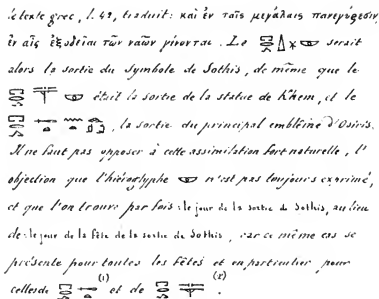 le texte grec, l. 42, traduit: καὶ ἐν ταῖς μεγάλαις πανεγύρεσιν,
ἐν αἷς ἐξοδεῖαι τῶν ναῶν γίνονται. Le serait
alors la sortie du symbole de Sothis, de même que le
était la sortie de la statue de Khem, et le
, la sortie du principal emblème d'Osiris.
Il ne faut pas opposer à cette assimilation fort naturelle, l'
objection que l'hiéroglyphe n'est pas toujours exprimé,
et que l'on trouve parfois: le jour de la sortie de Sothis, au lieu
de: le jour de la fête de la sortie de Sothis, car ce même cas se
présente pour toutes les fêtes et en particulier pour
celles de (1) et de (2).